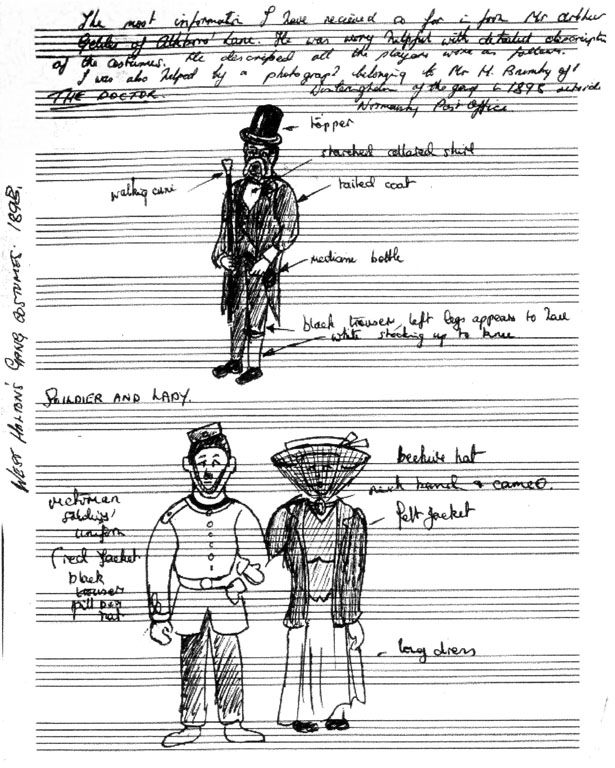 The most information I have received so far is from Mr Arthur
of Alkborō Lane. He was very helpful with detailed description
of the costumes. He described all the players were as follows.
I was also helped by a photograph belonging to Mr H. Brumby of
Winteringham of the gang in 1898 outside
THE DOCTOR.
Normanby Post Office
topper
starched collared shirt
walking cane
tailed coat
medicine bottle
black trouser, left legs appears to have
white stocking up to knee
WEST HALTON'S GANG COSTUMES. 1898.
SOLDIER AND LADY.
beehive hat
neck band & cameo.
felt jacket
victorian
soldiers'
uniform
(red jacket
black
trouser
pill box
hat
long dress